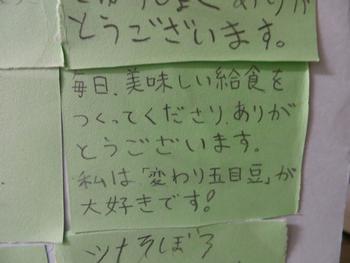 とうございます。
毎日、美味しい給食を
つくってくださり、ありが
とうございます。
私は「変わり五目豆」が
大好きです!
ツナそぼろ